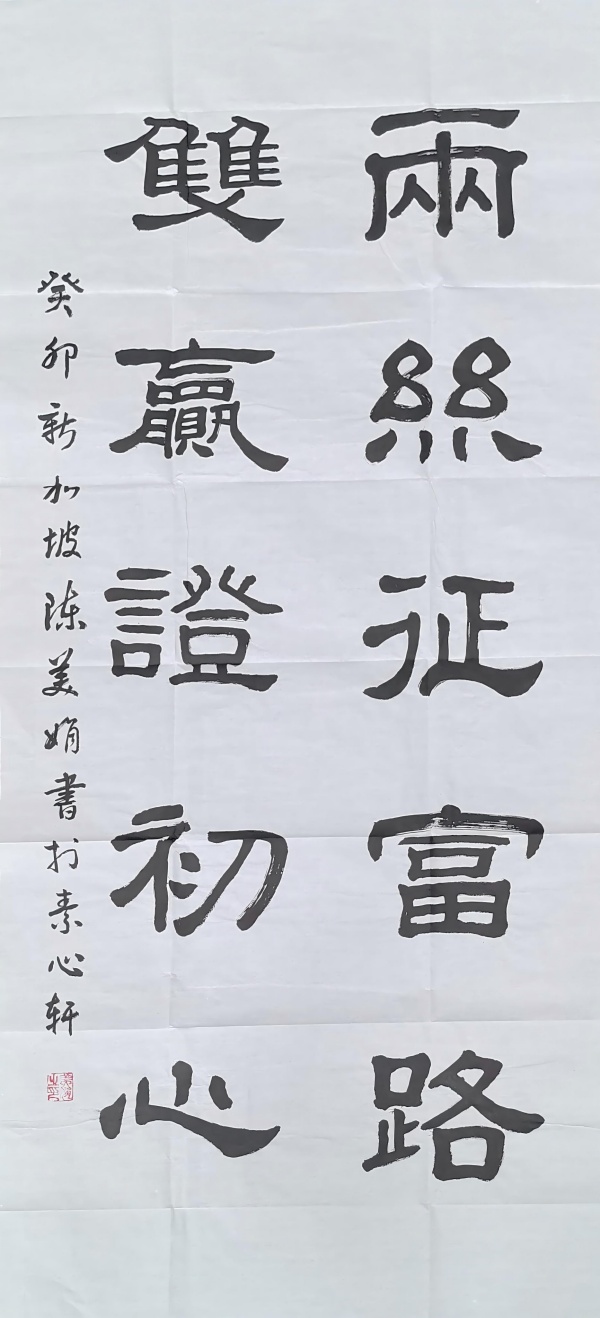 兩絲征富路
雙贏證初心
癸卯新加坡陈美娟書於素心轩